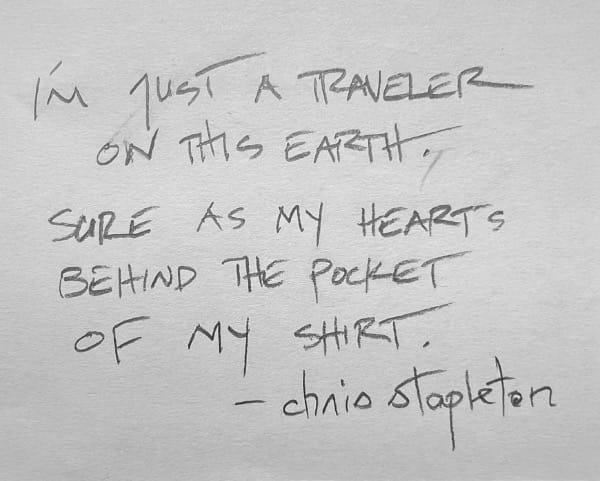 I'M JUST A TRAVELER
ON THIS EARTH.
SURE AS MY HEARTS
BEHIND THE POCKET
OF MY SHIRT.
- chris stapleton